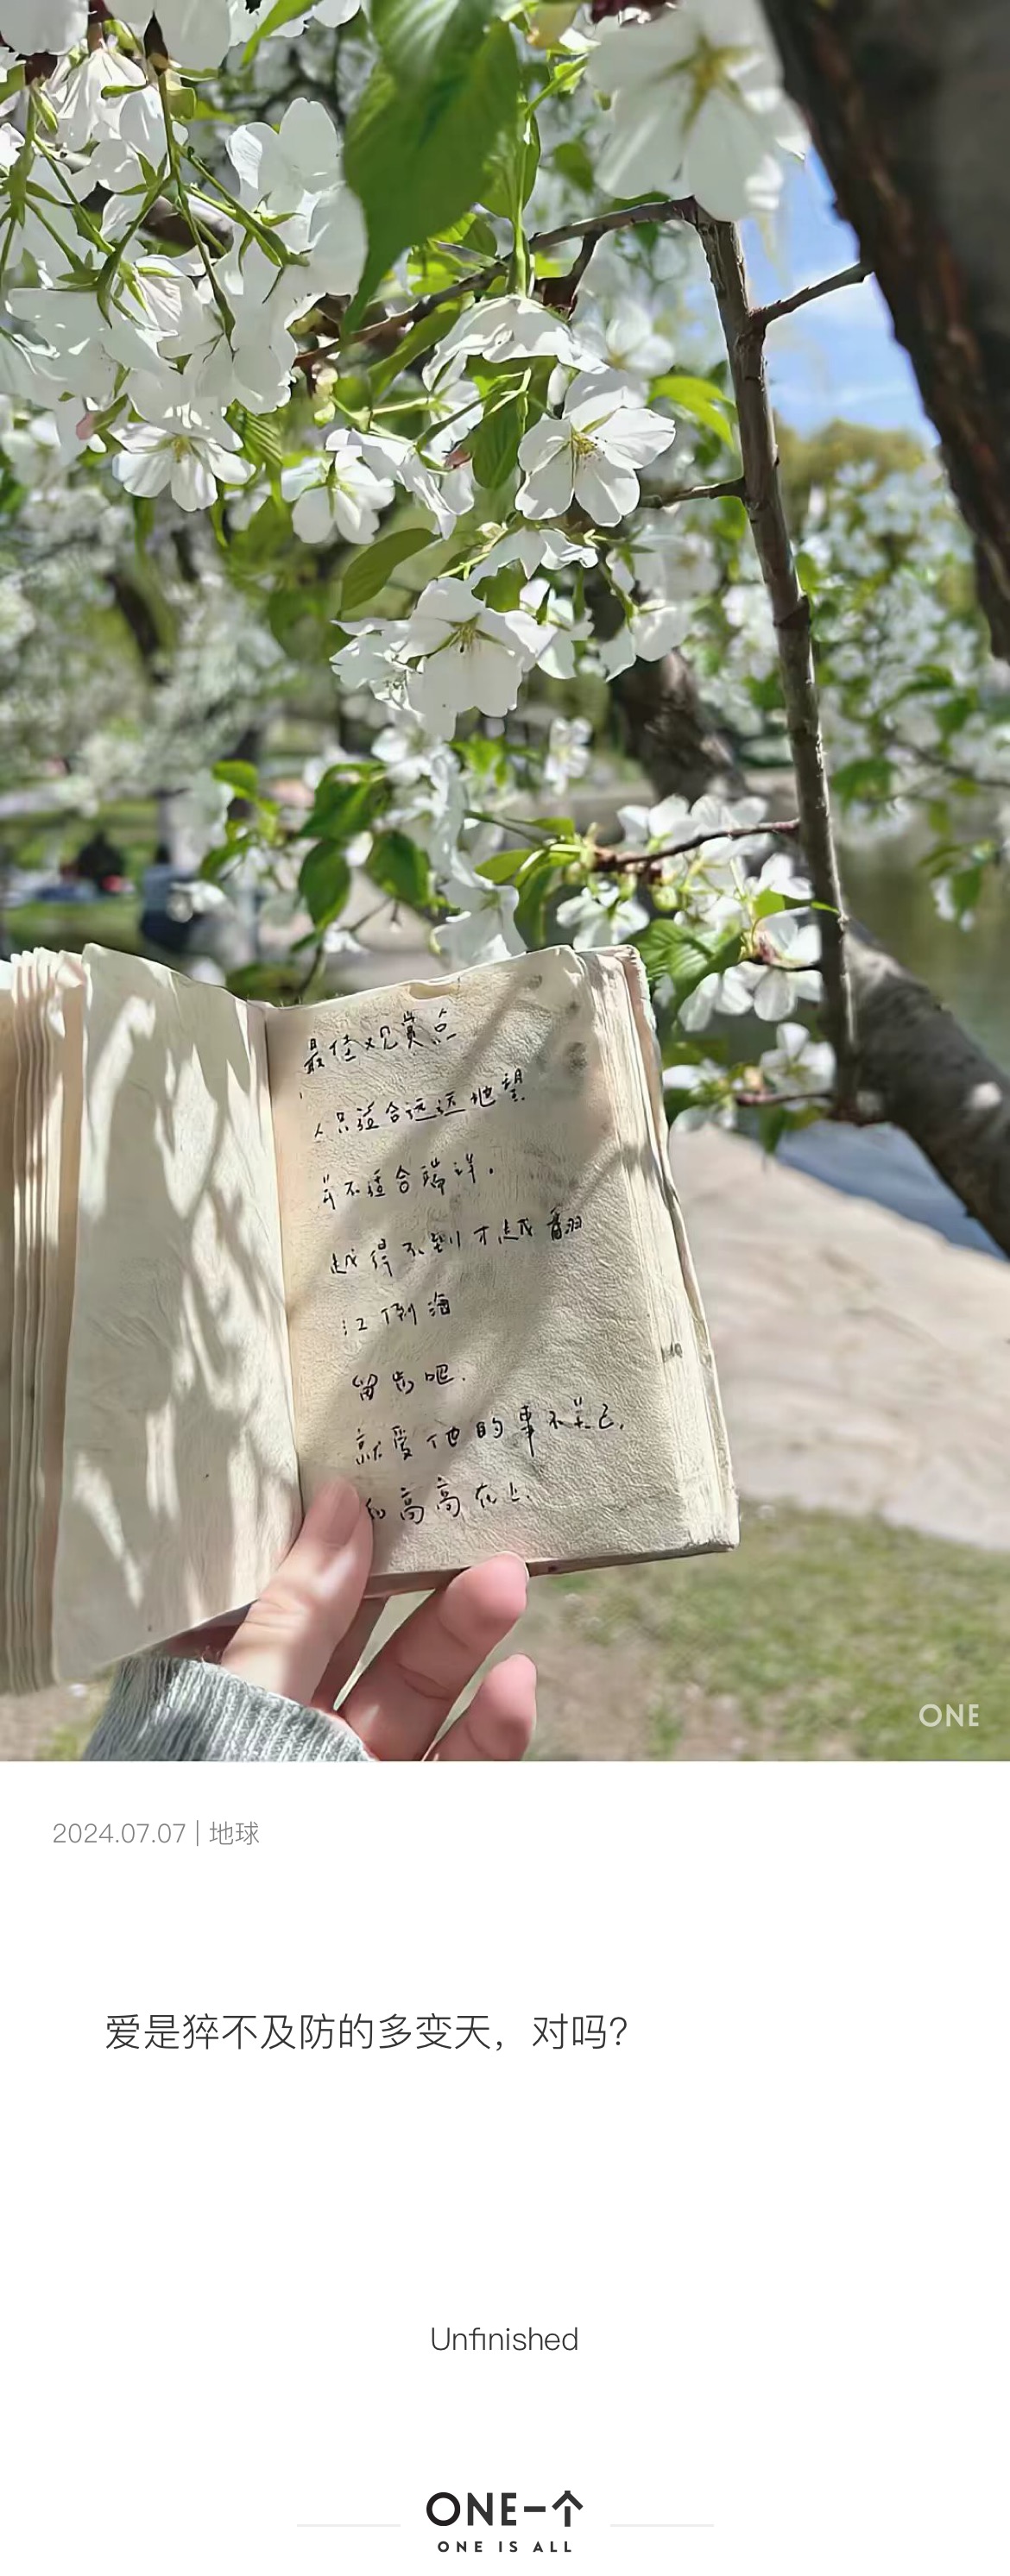 最佳观赏点
人只适合远远地望
并不适合端详。
越得不到才越翻
江倒海
留步吧.
就爱他的事不关己,
和高高在上.
ONE
2024.07.07 | 地球
爱是猝不及防的多变天，对吗？
Unfinished
ONE一个
ONE IS ALL